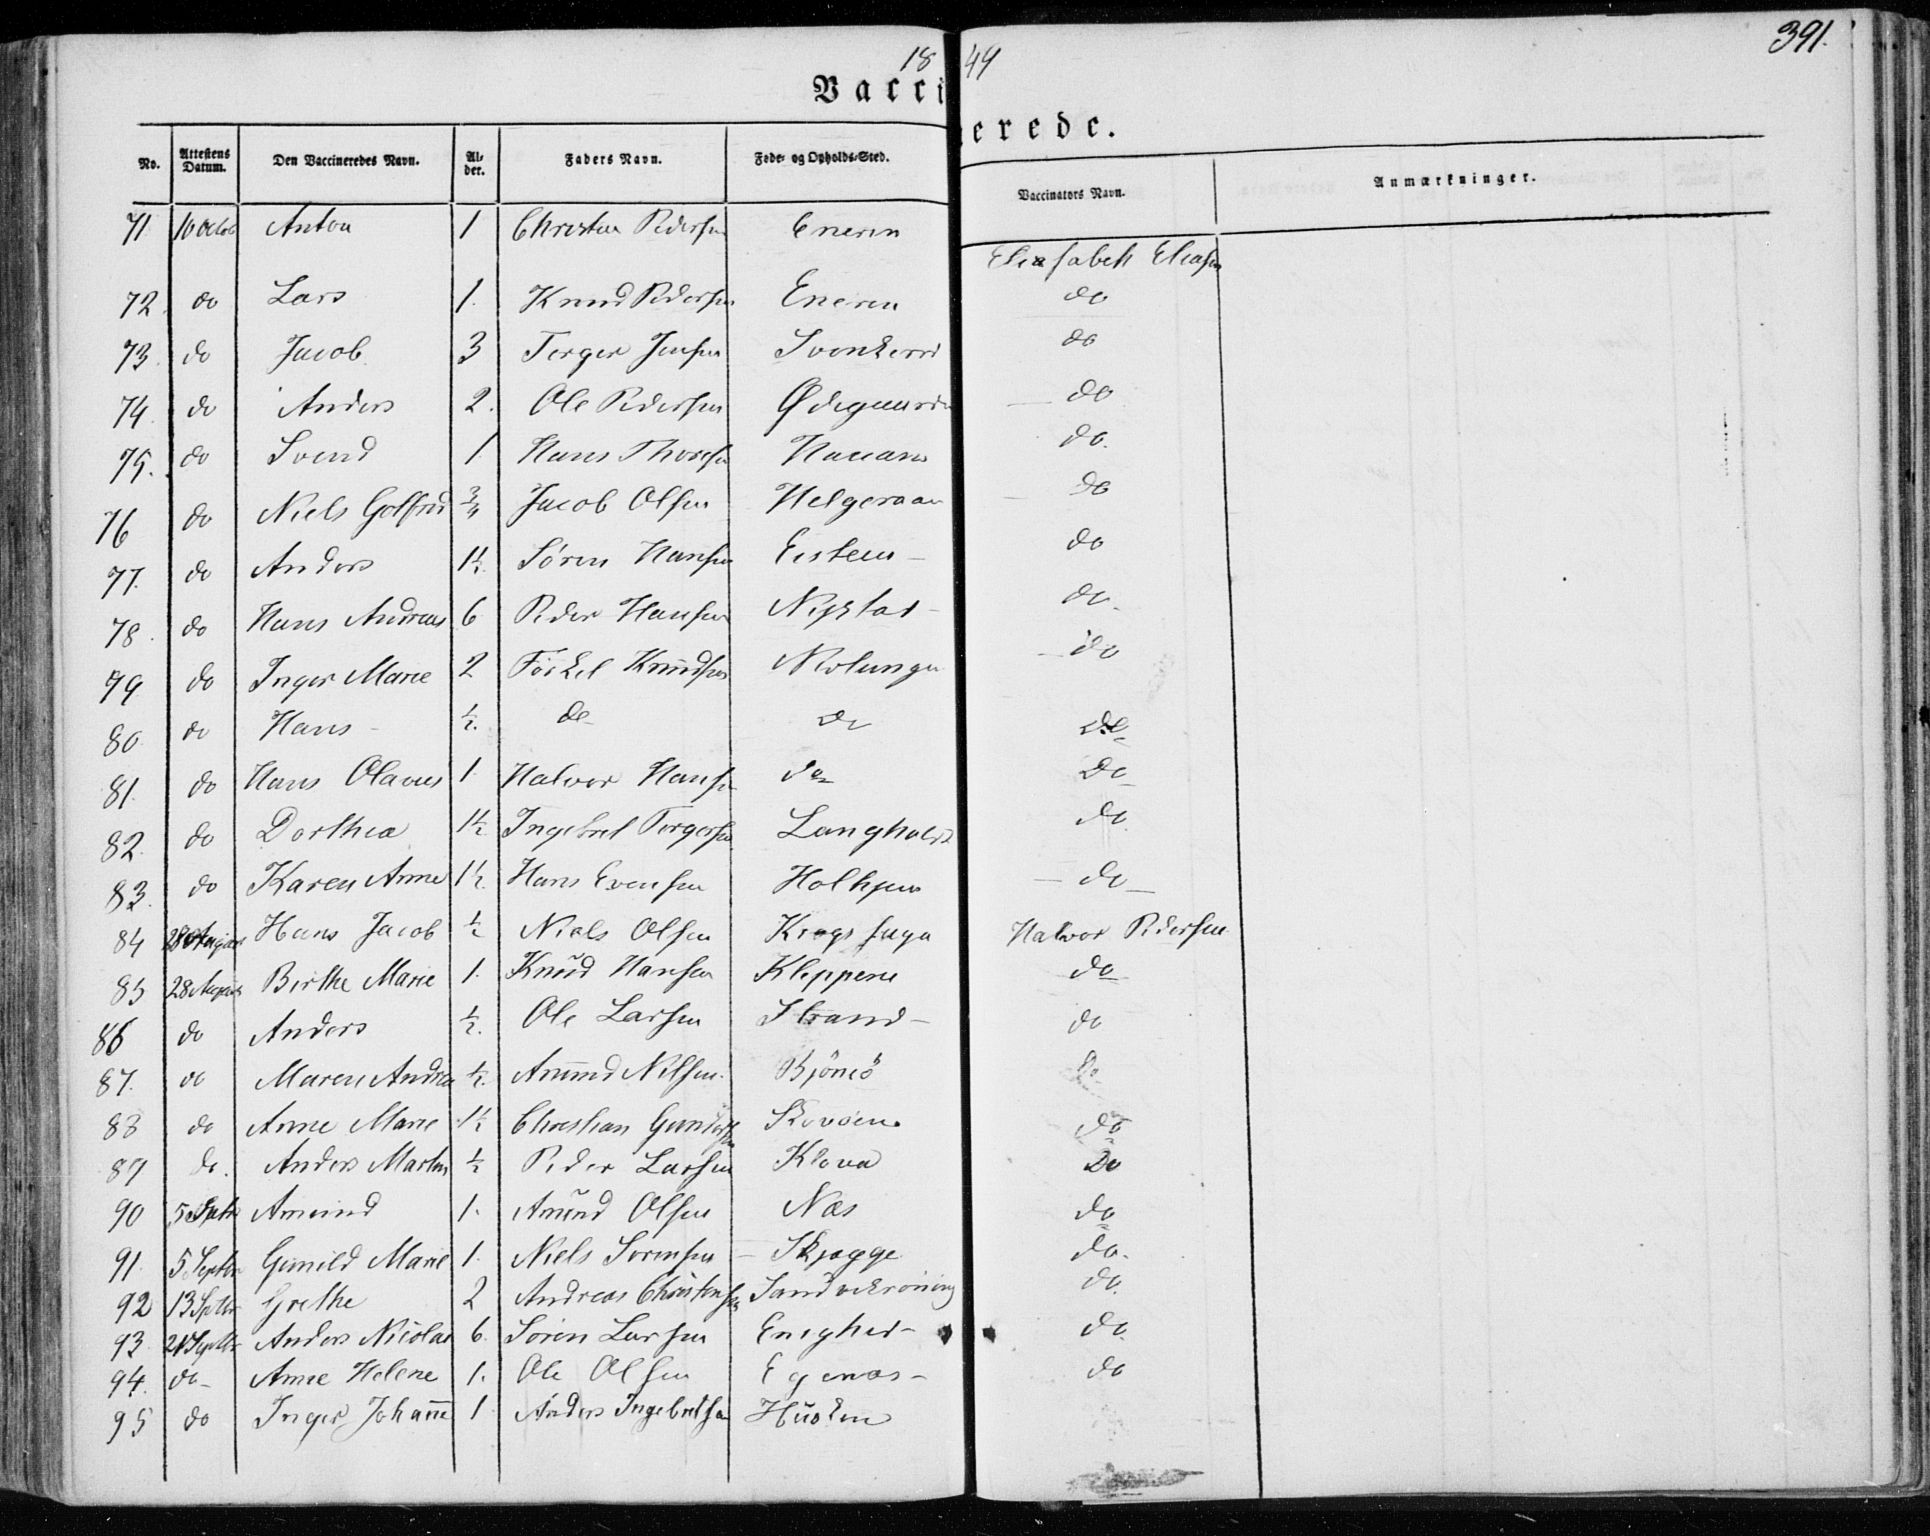 391.
18 49
Vaccinerede.
No. Attestens Datum. Den Vaccineredes Navn. Alder. Faders Navn. Føde- og Opholds-Sted. Vaccinators Navn. Anmærkninger.
71 10 Octob Anton 1 Christen Pedersen Eneren Elisabeth Eliasen
72 do Lars 1. Knud Pedersen Eneren do
73. do Jacob 3 Torger Jensen do
74 do Anders 2. Ole Pedersen Ødegaarden do
75. do Svend 1 Hans Thoresen do.
76 do Niels Golfrid 3/4 Jacob Olsen Helgeraaen do
77. do Anders 1½ Søren Hansen Eistein – do
78. do Hans Andreas 6 Peder Hansen do.
79 do Inger Marie 2 Torkel Knudsen do
80 do Hans – ½. do do do
81. do Hans Olaves 1 Halvor Hansen do do
82. do Dorthea 1½ Ingebret Torgersen Langholdt do.
83. do Karen Anne 1½. Hans Evensen do
84 28 August Hans Jacob ½ Niels Olsen Halvor Pedersen
85 28 August Birthe Marie 1. Knud Hansen Kleppene do
86 do Anders ½. Ole Larsen Strand – do
87. do Maren Andrea ½. Amund Nilsen. Bjönnö do
88 do Anne Marie 1½ Christian Gundersen do
89 do. Anders Martin ½ Peder Larsen Klova do
90 5 Septr Amund 1. Amund Olsen Næs do
91. 5 Septbr Gunild Marie 1. Niels Sörensen – Skjægge do.
92 13 Septbr Grethe 2 Andreas Christensen do.
93. 21 Septbr Anders Nicolai 6. Sören Larsen Enighed – do.
94. do – Anne Helene 1. Ole Olsen Egenæs – do
95 do Inger Johanne 1 Anders Ingebretsen